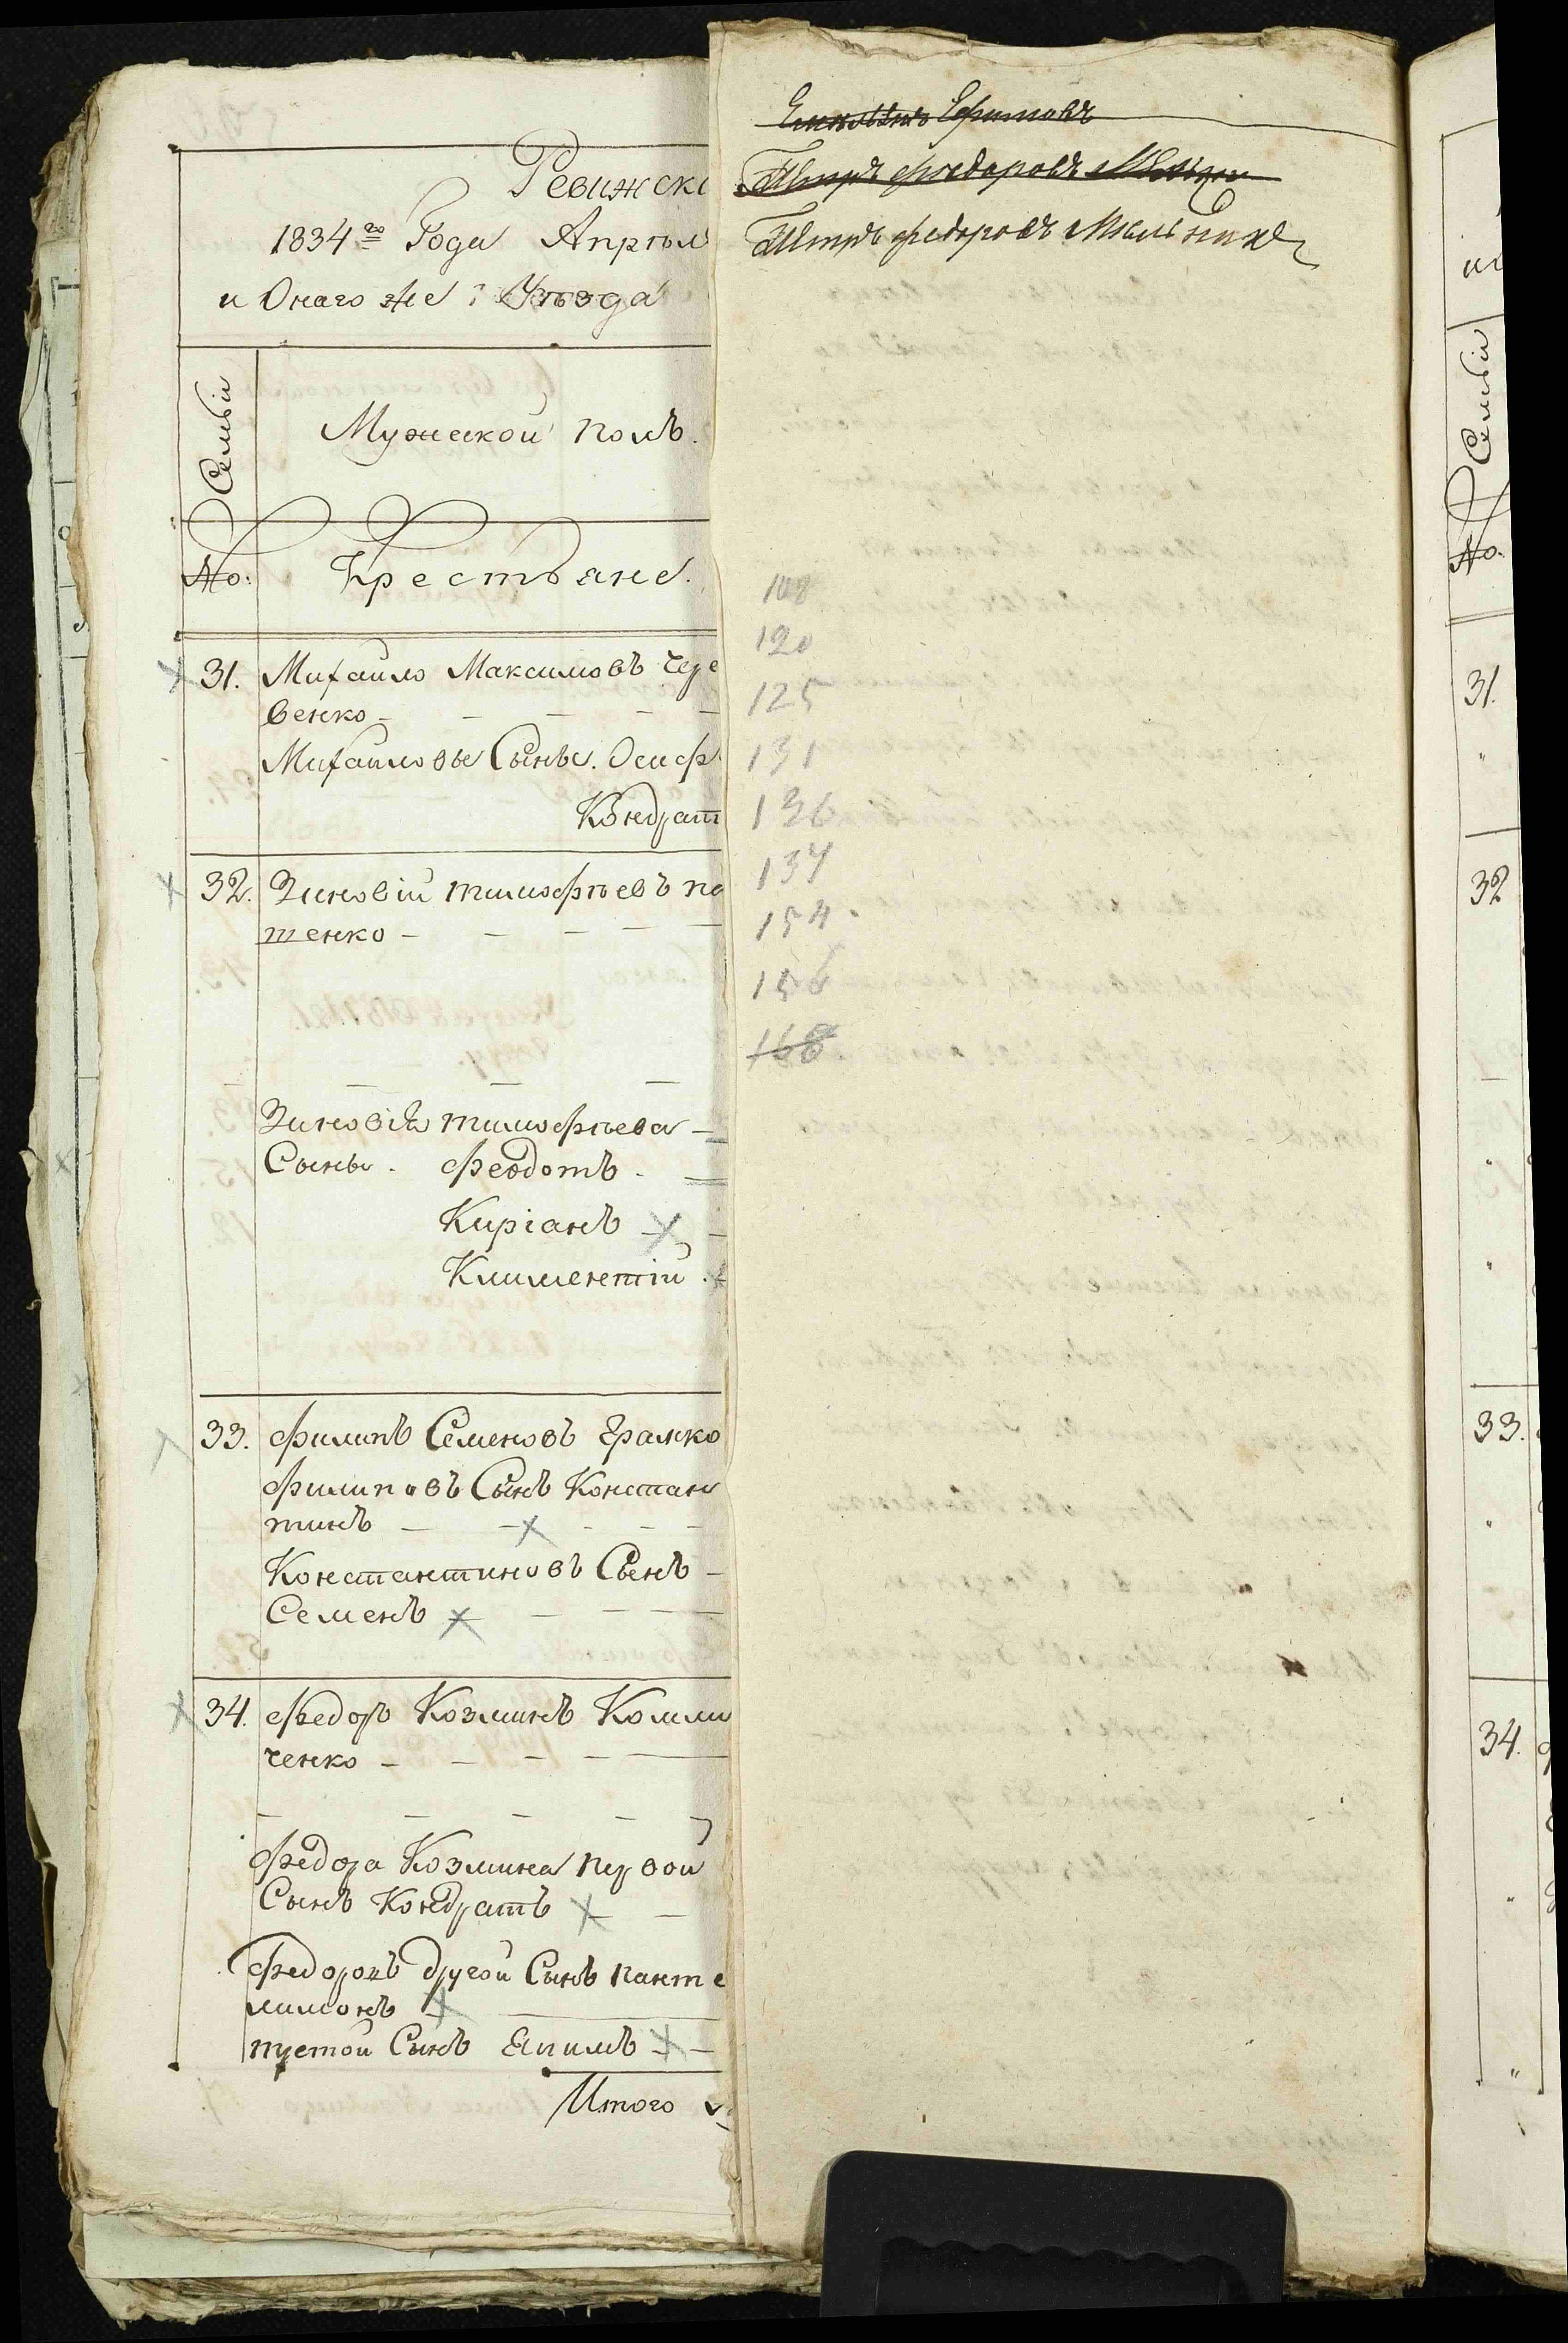 Ревижск
1834го Года Апрѣл
и Онаго же Уѣзда
Семьи
Мужеской полъ.
No:
Крестьяне.
31. Михайло Максимовъ Чер
венко
Михайловы Сыны. Осиф
Кондрат
32. Зиновій тимофѣевъ по
тенко
Зиновія тимофѣева
Сыны. Феодотъ.
Кирiанъ
Климентій.
33. Филипъ Семеновъ Грамко
Филиповъ Сынъ Констан
тинъ
Константиновъ Сынъ
Семенъ
34. Федоръ Козминъ Коли
ченко
Федора Козмина первой
Сынъ Кондратъ
Федоровъ другой Сынъ панте
лимонъ
пустой Сынъ Епимъ
Итого
Ефимовъ
Петръ Федоровъ
Петръ Федоровъ Мѣльник
108
120
125
131
136
137
154.
156
168
Семьи
No.
31.
32
33.
34.